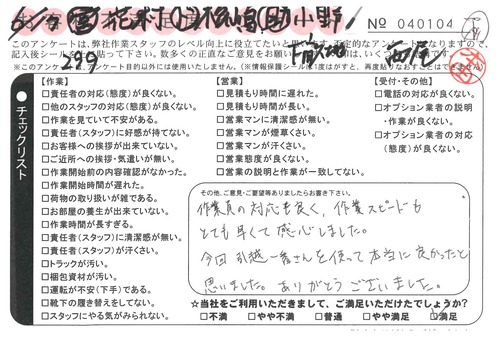 No 040104
このアンケートは、弊社作業スタッフのレベル向上に役立てたいと
記入後シール
299
【作業】
□責任者の対応(態度)が良くない。
□他のスタッフの対応(態度)が良くない。
□作業を見ていて不安がある。
□責任者(スタッフ)に好感が持てない。
□お客様への挨拶が出来ていない。
□ご近所への挨拶・気遣いが無い。
□作業開始前の内容確認がなかった。
□作業開始時間が遅れた。
□荷物の取り扱いが雑である。
□お部屋の養生が出来ていない。
□作業時間が長すぎる。
□責任者(スタッフ)に清潔感が無い。
□責任者(スタッフ)が汗くさい。
□トラックが汚い。
□梱包資材が汚い。
□運転が不安(下手)である。
□靴下の履き替えをしてない。
□スタッフにやる気がみられない。
【営業】
□見積もり時間に遅れた。
□見積もり時間が長い。
□営業マンに清潔感が無い。
□営業マンが煙草くさい。
□営業マンが汗くさい。
□営業態度が良くない。
□営業の説明と作業が一致してない。
【受付・その他】
□電話の対応が良くない。
□オプション業者の説明
・作業が良くない。
□オプション業者の対応
(態度)が良くない。
チェックリスト
その他、ご意見・ご要望等ありましたらお書き下さい。
作業員の対応も良く、作業スピードも
とても早くて感心しました。
今回 引越一番さんを使って本当に良かったと
思いました。ありがとうございました。
☆当社をご利用いただきまして、ご満足いただけたでしょうか?
□不満 □やや不満 □普通 □やや満足 □満足